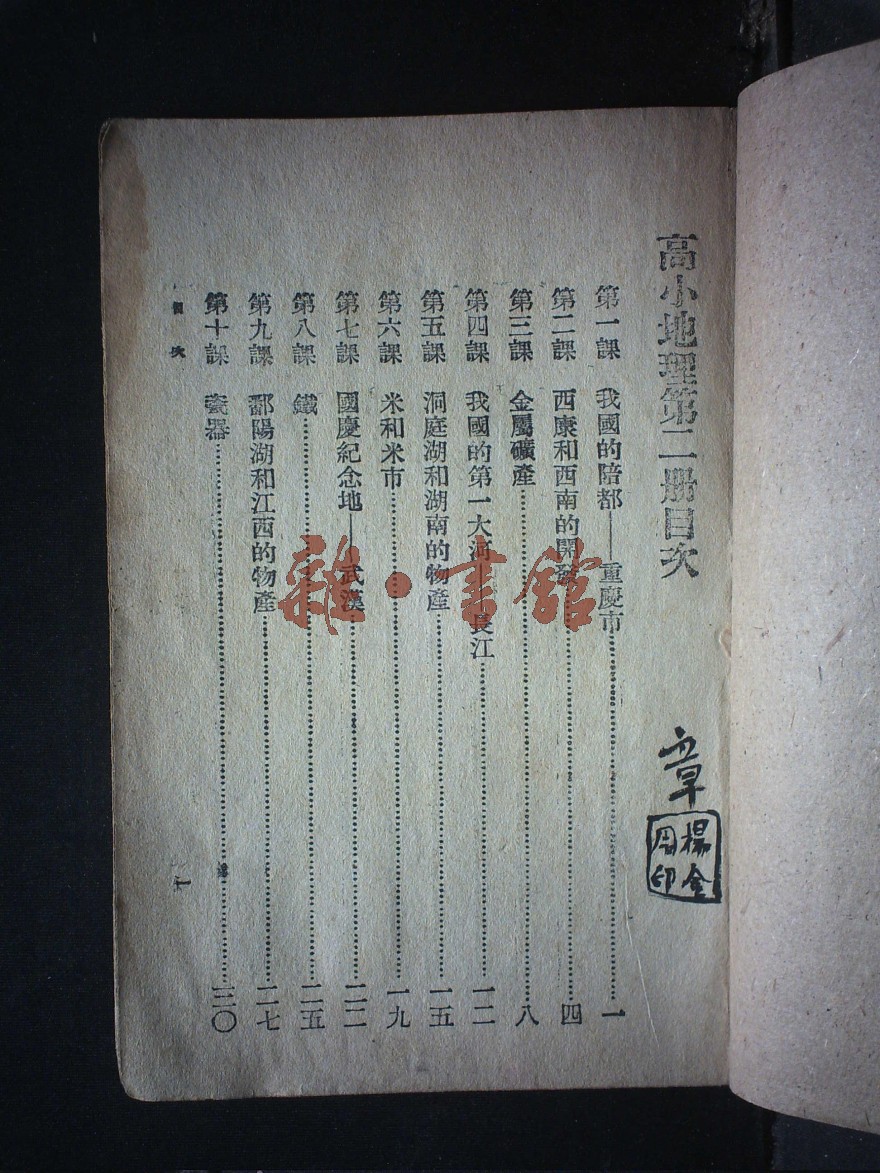 高小地理第二册目次
第一課 我國的陪都——重慶市……一
第二課 西康和西南的開發……四
第三課 金屬礦產……八
第四課 我國的第一大河——長江……一二
第五課 洞庭湖和湖南的物產……一五
第六課 米和米市……一九
第七課 國慶紀念地——武漢……二二
第八課 鐵……二五
第九課 鄱陽湖和江西的物產……二七
第十課 瓷器……三〇
目次
一
章
楊金
印
雜·書館